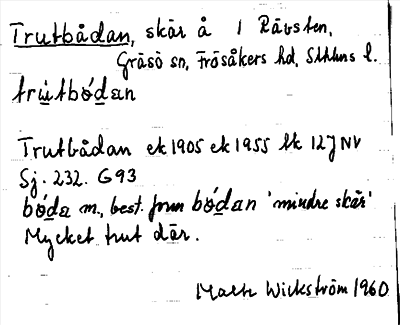 Trutbådan, skär å 1 Rävsten,
Gräsö sn, Frösåkers hd, Sthlms l.
trùtbǿdan
Trutbådan ek 1905 ek 1955 tk 12J NV
Sj. 232. G93
bǿda m., best. form bǿdan 'mindre skär'
Mycket trut där.
Mats Wickström 1960